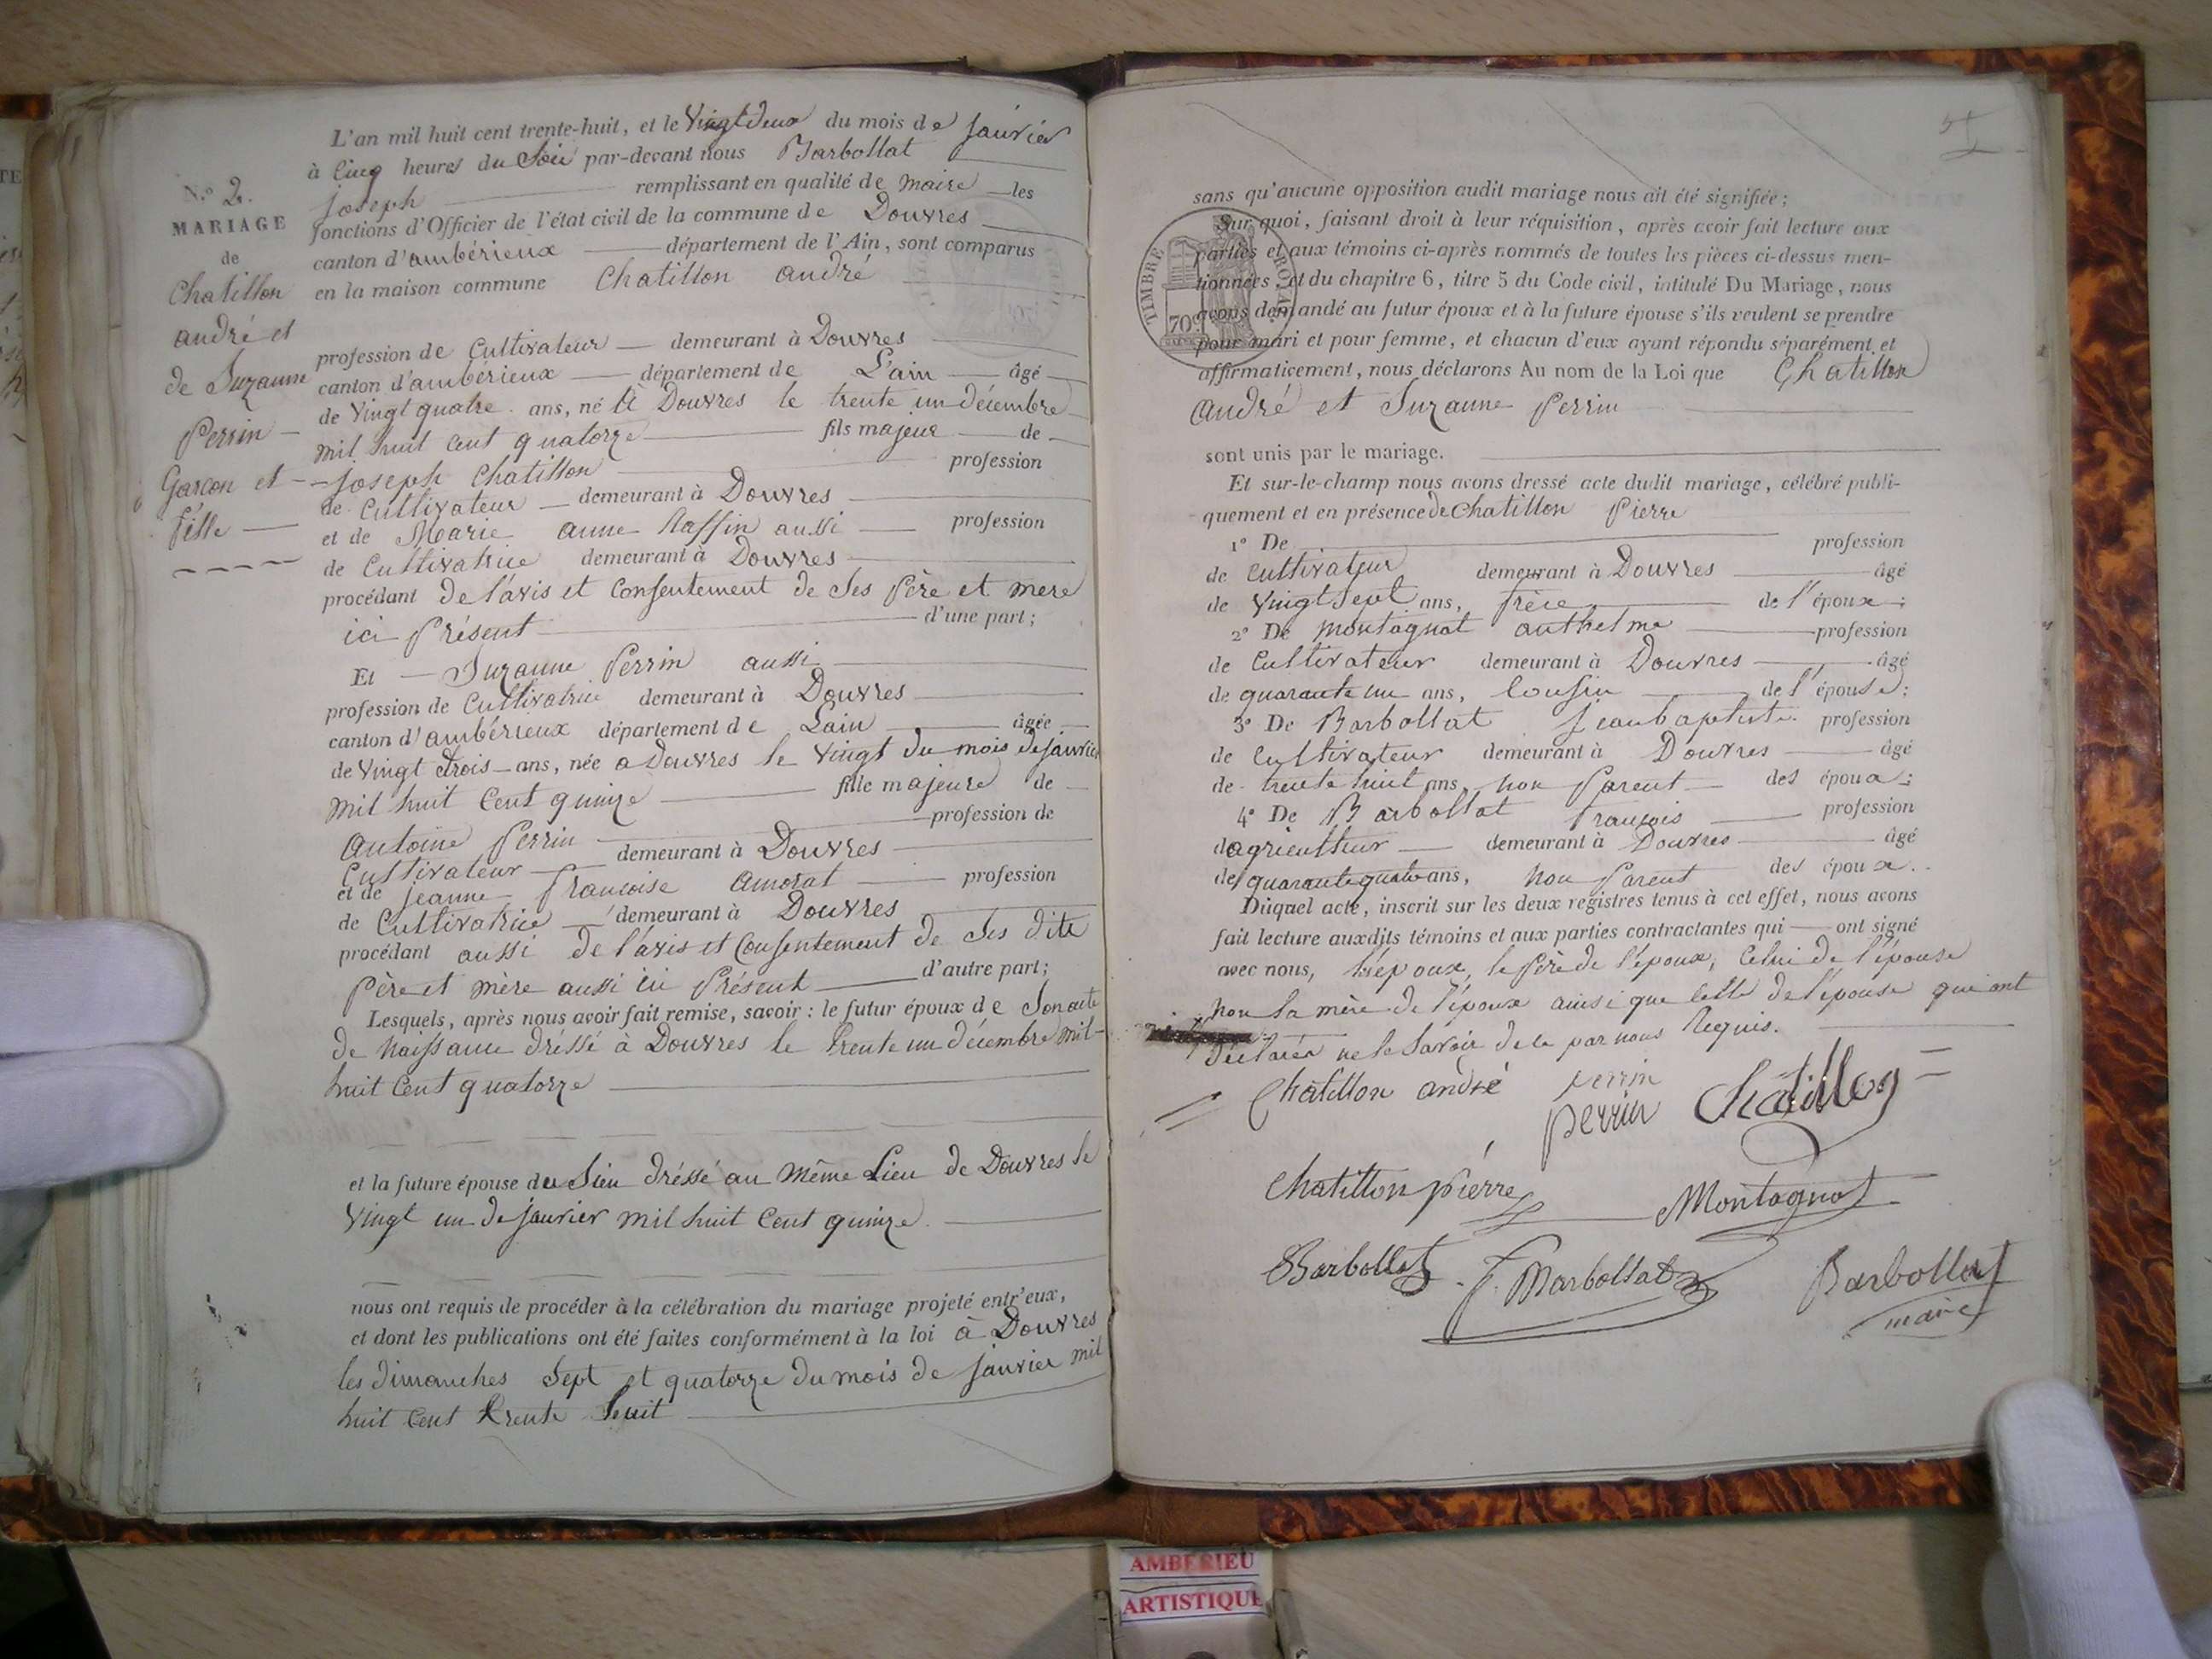 N.º 2.
MARIAGE
de
Chatillon
andré et
de Suzanne
Perrin —
Garcon et -
fille —
L'an mil huit cent trente-huit, et le Vingt deux du mois de janvier
à Cinq heures du Soir par-devant nous Barbollat
joseph remplissant en qualité de maire les
fonctions d'Officier de l'état civil de la commune de Douvres
canton d'ambérieux département de l'Ain, sont comparus
en la maison commune Chatillon andré
profession de Cultivateur demeurant à Douvres
canton d'ambérieux département de L'ain âgé
de Vingt quatre ans, né à Douvres le trente un décembre
mil huit cent quatorze fils majeur de
joseph Chatillon profession
de Cultivateur demeurant à Douvres
et de Marie anne Raffin aussi profession
de Cultivatrice demeurant à Douvres
procédant de l'avis et Consentement de Ses Père et mere
ici Présent d'une part;
Et Suzanne Perrin aussi
profession de Cultivatrice demeurant à Douvres
canton d'ambérieux département de Lain âgée
de Vingt trois ans, née a Douvres le vingt du mois de janvier
mil huit Cent quinze fille majeure de
Antoine Perrin profession de
Cultivateur demeurant à Douvres
et de jeanne francoise amorat profession
de Cultivatrice demeurant à Douvres
procédant aussi de l'avis et Consentement de Ses dits
Père et mère aussi ici Présent d'autre part;
Lesquels, après nous avoir fait remise, savoir : le futur époux de Son acte
de Naissance dréssé à Douvres le trente un décembre mil
huit Cent quatorze
et la future épouse du Sien dréssé au même Lieu de Douvres le
vingt un de janvier mil huit Cent quinze.
nous ont requis de procéder à la célébration du mariage projeté entr'eux,
et dont les publications ont été faites conformément à la loi à Douvres
les dimanches Sept et quatorze du mois de janvier mil
huit Cent trente huit
sans qu'aucune opposition audit mariage nous ait été signifiée;
Sur quoi, faisant droit à leur réquisition, après avoir fait lecture aux
parties et aux témoins ci-après nommés de toutes les pièces ci-dessus men-
tionnées, et du chapitre 6, titre 5 du Code civil, intitulé Du Mariage, nous
avons demandé au futur époux et à la future épouse s'ils veulent se prendre
pour mari et pour femme, et chacun d'eux ayant répondu séparément et
affirmativement, nous déclarons Au nom de la Loi que Chatillon
andré et Suzanne Perrin
sont unis par le mariage.
Et sur-le-champ nous avons dressé acte dudit mariage, célébré publi-
quement et en présence de Chatillon Pierre
1º De profession
de cultivateur demeurant à Douvres âgé
de Vingt Sept ans, frère de l'époux;
2º De montagnat anthelme profession
de Cultivateur demeurant à Douvres âgé
de quarante un ans, Cousin de l'épouse;
3º De Barbollat jeanbaptiste profession
de Cultivateur demeurant à Douvres âgé
de trente huit ans, non Parent des époux;
4º De Barbollat francois profession
d'agriculteur demeurant à Douvres âgé
de quarante quatre ans, non Parent des époux.
Duquel acte, inscrit sur les deux registres tenus à cet effet, nous avons
fait lecture auxdits témoins et aux parties contractantes qui ont signé
avec nous, l'époux, le Père de l'époux, Celui de l'épouse
non la mère de l'époux ainsi que Celle de l'épouse qui ont
Déclarer ne le Savoir de ce par nous Requis.
Chatillon andré perrin
perrin Chatillon
Chatillon pierre Montagnat
Barbollat f. Barbollat Barbollat
maire
TIMBRE ROYAL
70c
AMBERIEU
ARTISTIQUE